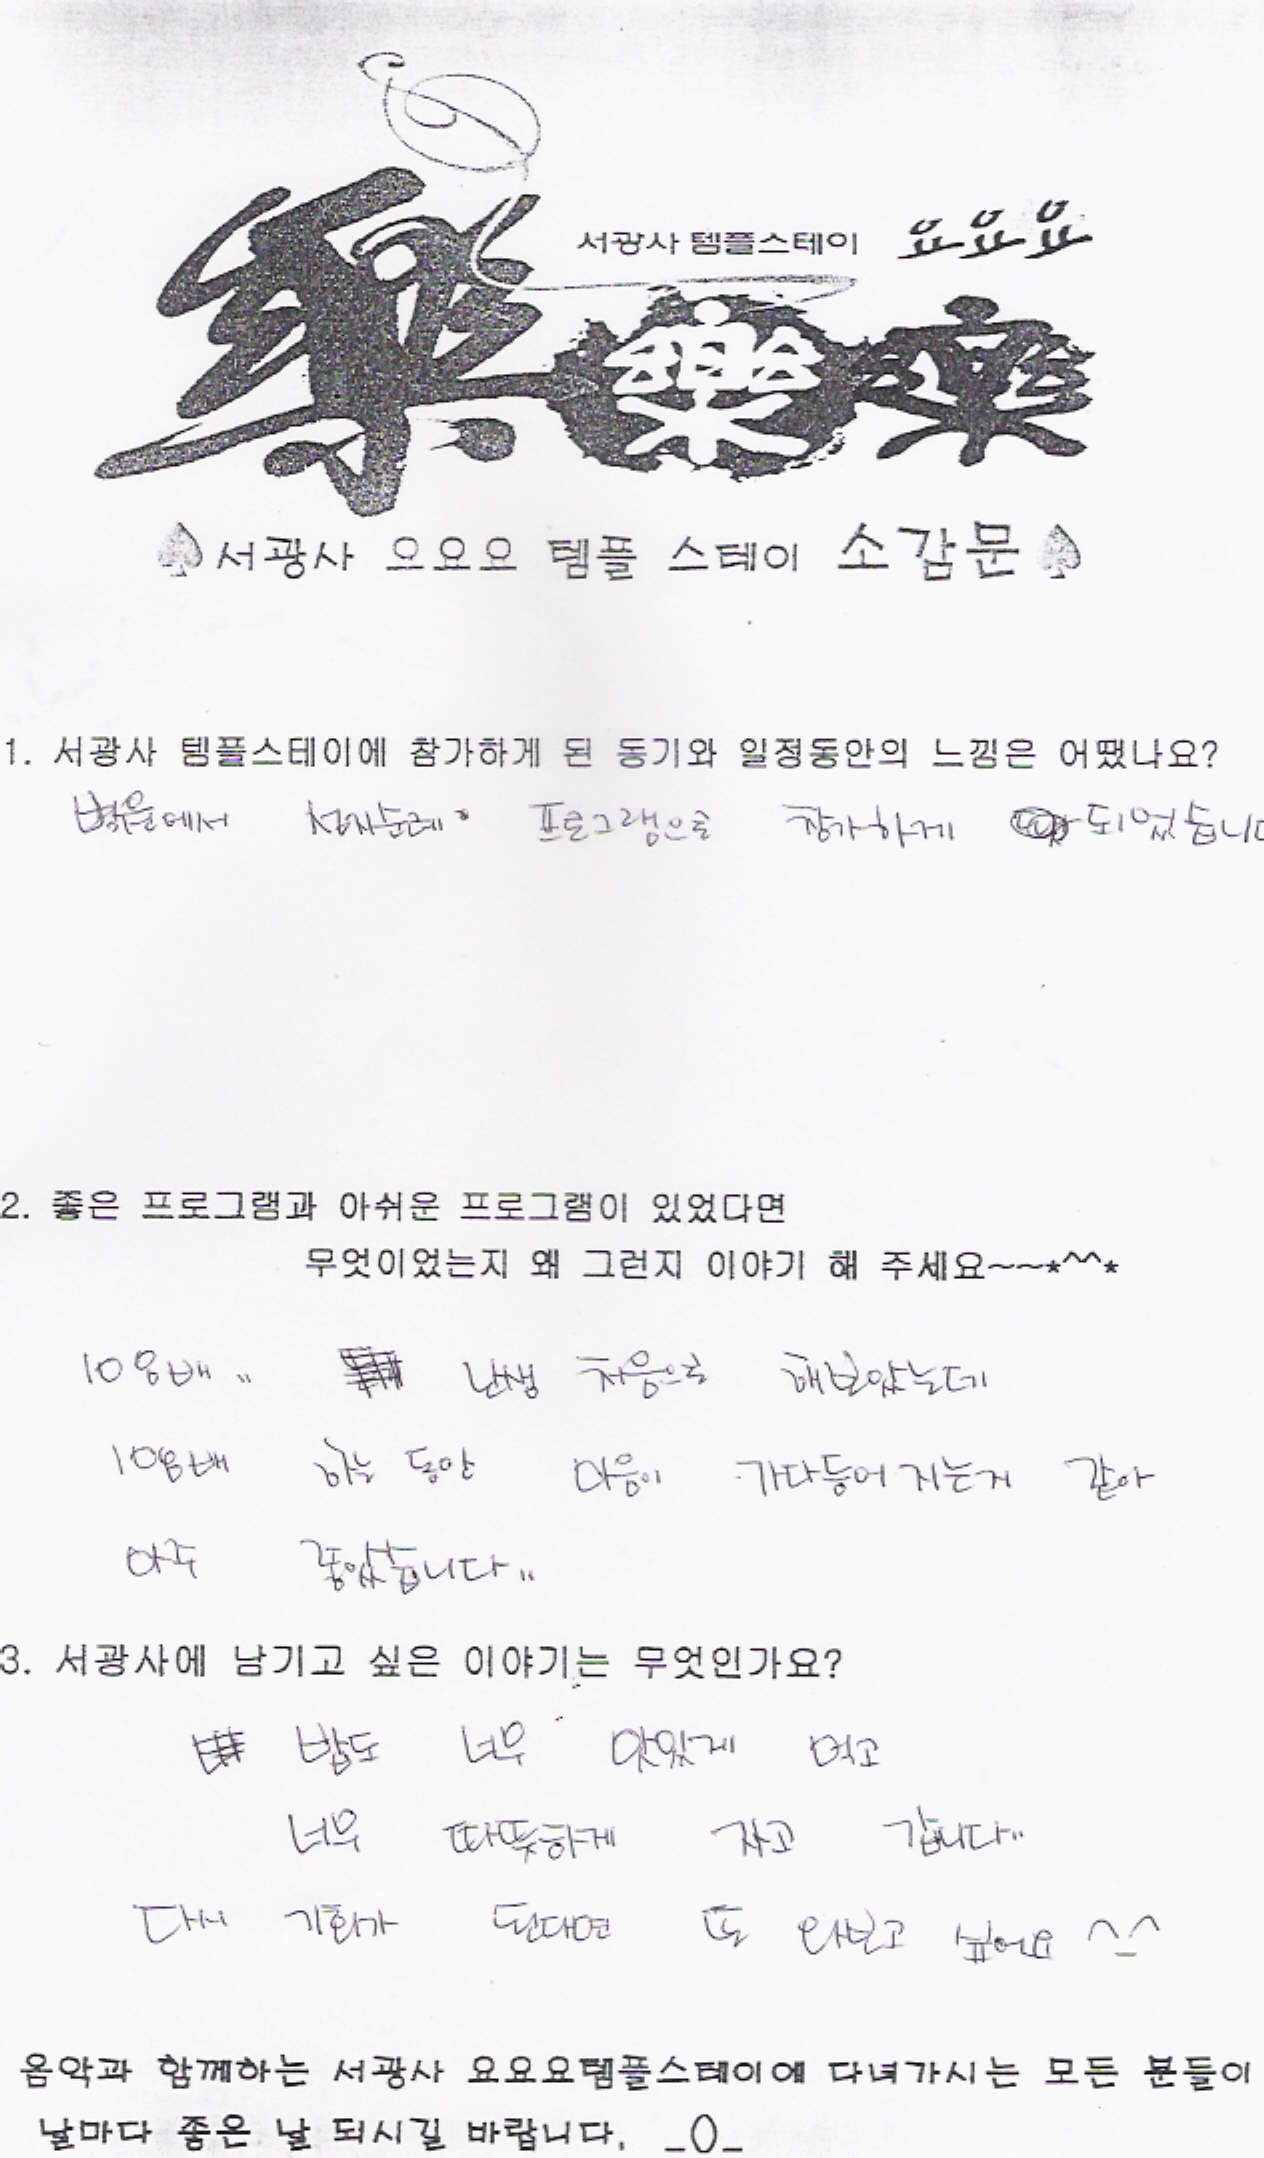 서광사 템플스테이 요요요
樂 樂 樂
서광사 요요요 템플 스테이 소감문
1. 서광사 템플스테이에 참가하게 된 동기와 일정동안의 느낌은 어땠나요?
프로그램으로 참가하게 되었습니다
2. 좋은 프로그램과 아쉬운 프로그램이 있었다면
무엇이었는지 왜 그런지 이야기 해 주세요~~*^^*
108배 난생 처음으로 해보았는데
108배 하는 동안 마음이 가다듬어 지는거 같아
아주 좋았습니다
3. 서광사에 남기고 싶은 이야기는 무엇인가요?
밥도 너무 맛있게 먹고
너무 따뜻하게 자고 갑니다
다시 기회가 된다면 또 와보고 싶어요 ^_^
음악과 함께하는 서광사 요요요템플스테이에 다녀가시는 모든 분들이
날마다 좋은 날 되시길 바랍니다. _()_